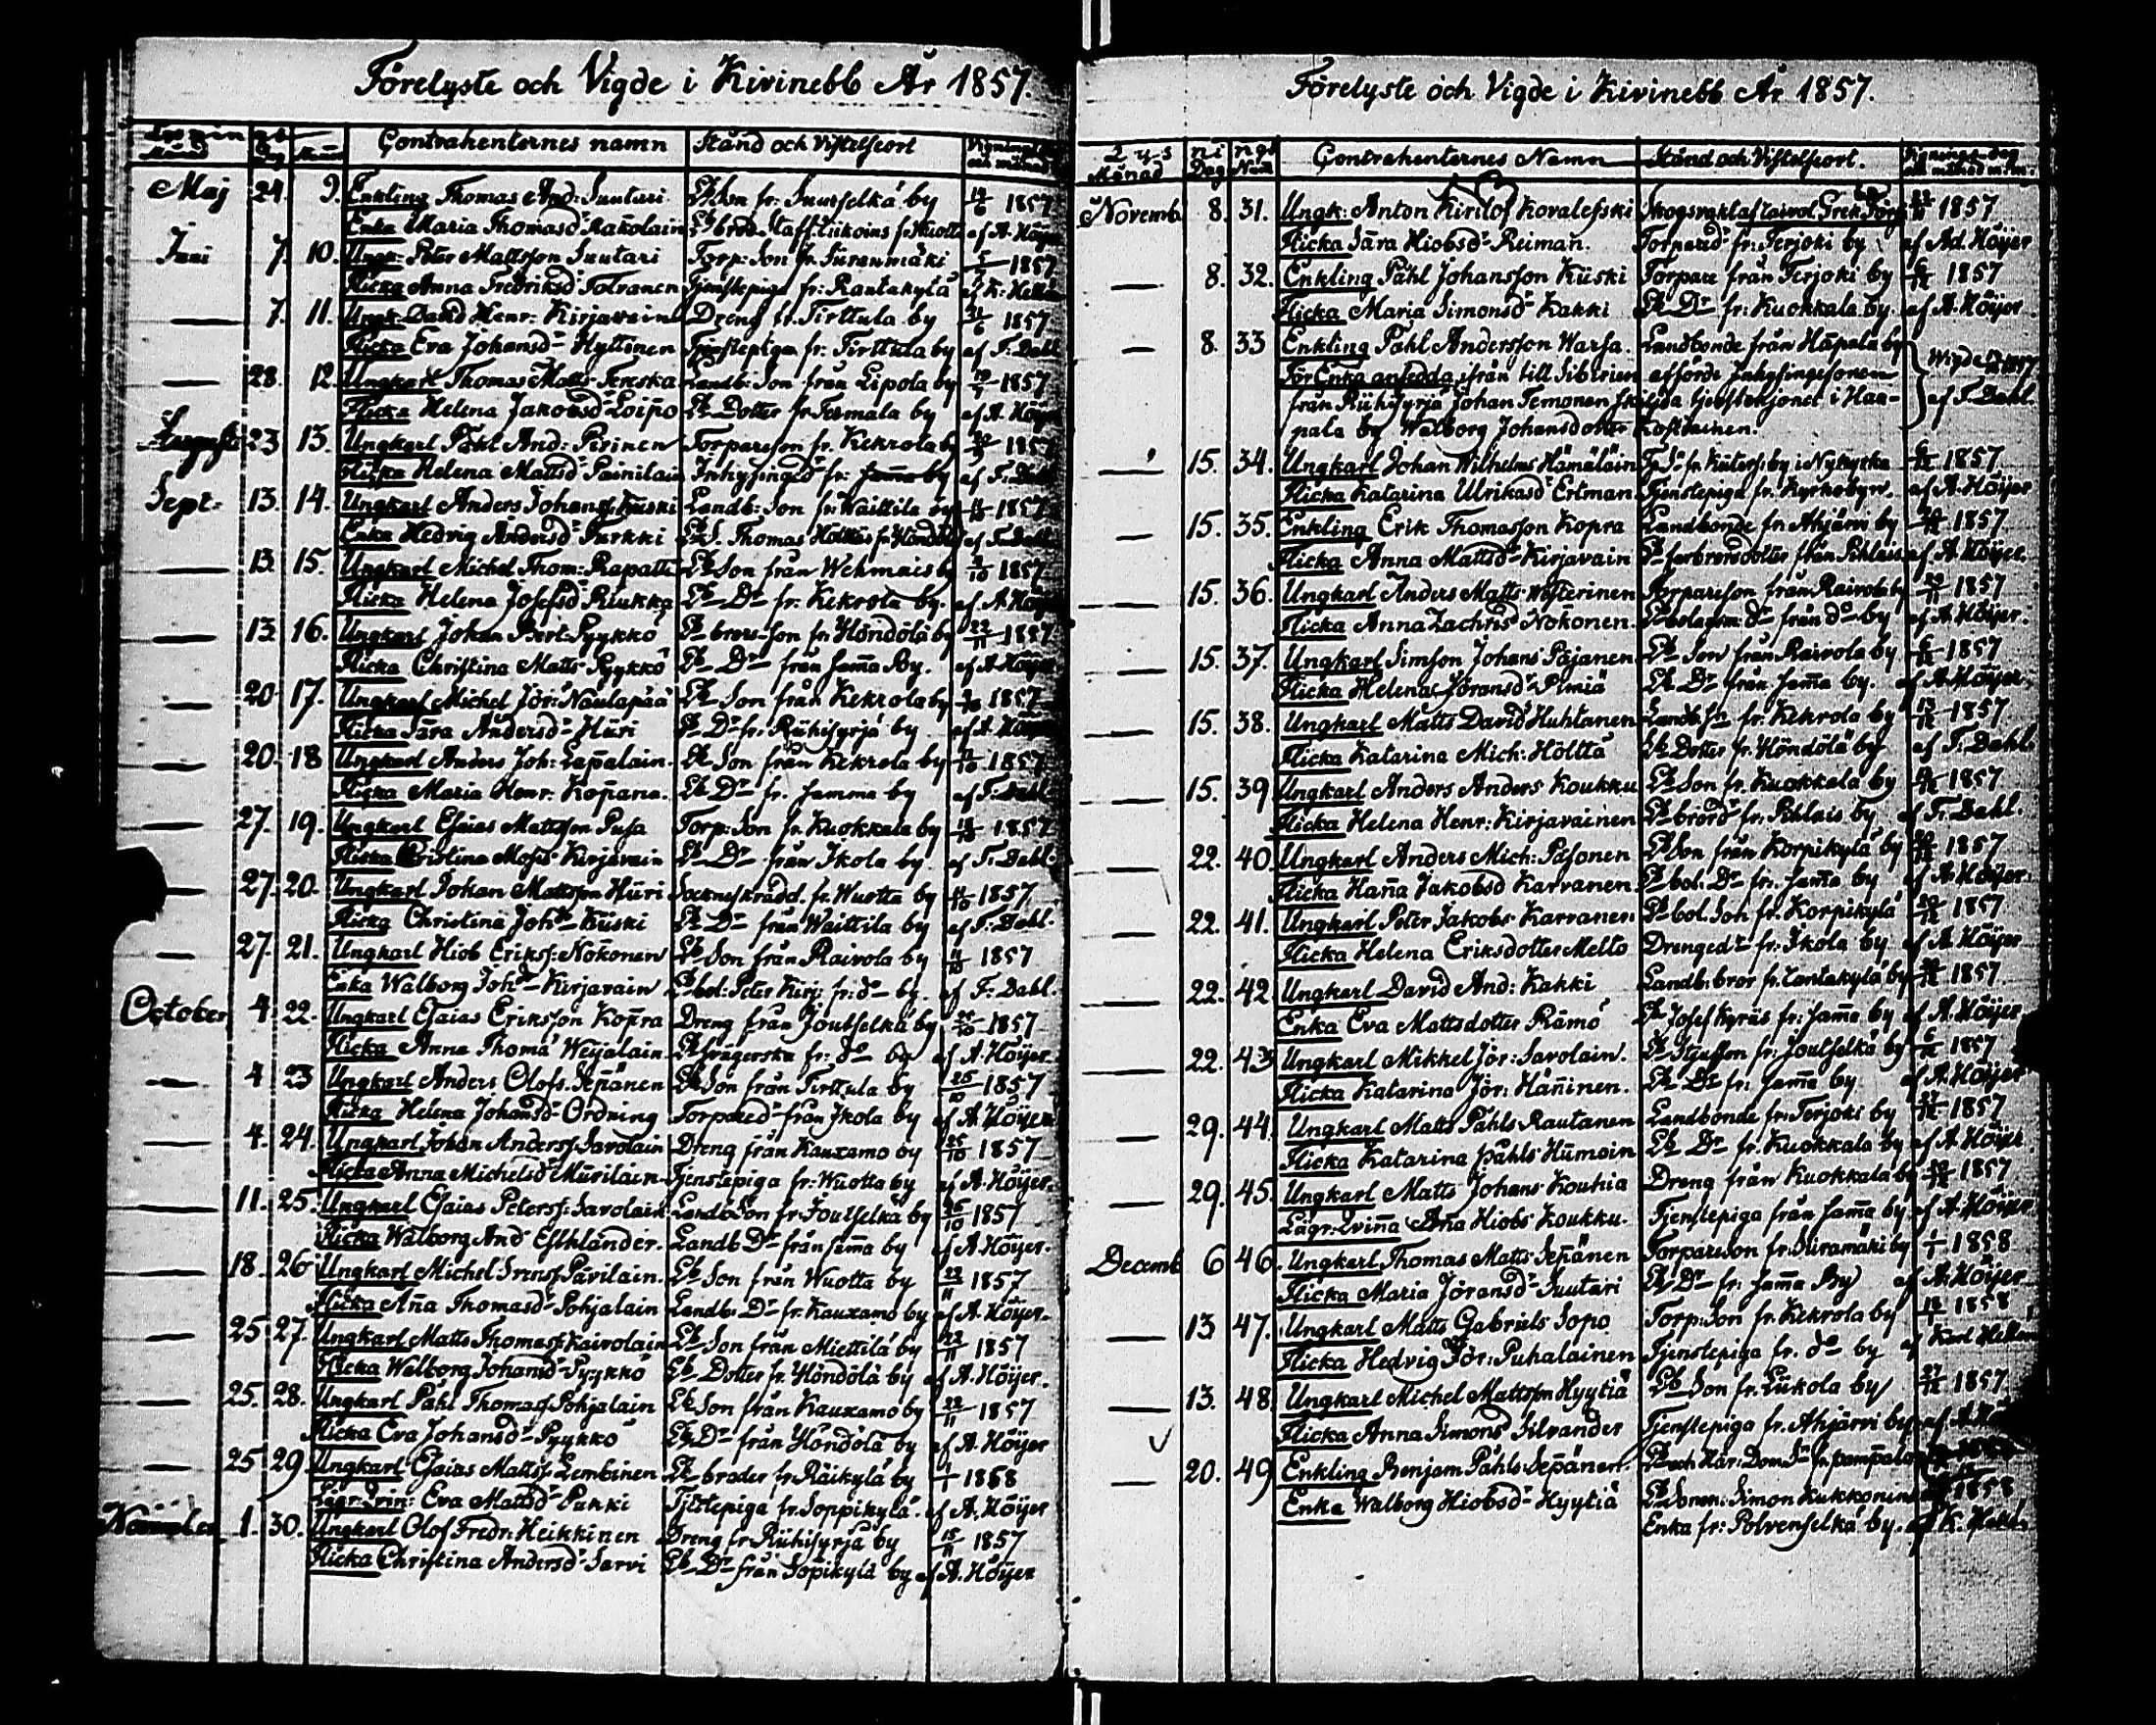 Förelyste och Vigde i Kivinebb År 1857.
Månad Dag Num Contrahenternes namn Stånd och Vistelseort Vigningsdag och månad
Maj 24. 9. Enkling Thomas And: Suutari Eb Son fr: Suurselkä by 14/6 1857
Enka Maria Thomasd:r Kakolain af A. Höijer
Juni 7. 10. Ungk: Peter Mattsson Suutari Torp: Son fr. Surenmäki 5/7 1857
Flicka Anna Fredriksd:r Totranen Tjenstepiga fr: Rautakylä af K: Hellm
— 7. 11. Ungk: David Henr: Kirjavain Dreng fr. Tirttula by 21/6 1857
Flicka Eva Johansd:r Hyttinen Tjenstepiga fr: Tirttula by af F: Dahl
— 28. 12. Ungkarl Thomas Matts: Tereska Landb: Son från Lipola by 1857
Flicka Helena Jakobsd:r Loippo Eb Dotter fr Termala by af A. Höijer
Augusti 23 13. Ungkarl Påhl And: Pirinen Torpareson fr. Kekrola by 1857
Flicka Helena Mattsd:r Painilain Inhysinged:r fr: samma by af F: Dahl
Sept: 13. 14. Ungkarl Anders Johans: Kuski Landb: Son fr: Waittila by 1857
Enka Hedvig Andersd:r Turkki Eb S. Thomas Holttas fr Höndölä af F: Dahl
— 13. 15. Ungkarl Michel Thom: Rapatti Eb Son från Wehmais by 1857
Flicka Helena Josefsd:r Riukka Eb D:r fr: Kekrola by. af A. Höijer
— 13. 16. Ungkarl Johan Bert: Pyykkö Eb brors-Son fr. Höndölä by 22/11 1857
Flicka Christina Matts: Pyykkö Eb D:r från sama By. af A. Höijer
— 20 17. Ungkarl Michel Jör: Naulapää Eb Son från Kekrola by 1857
Flicka Sara Andersd:r Hüri Eb D:r fr: Riihisyrjä by af A. Höijer
— 20. 18 Ungkarl Anders Joh: Lapalain. Eb Son från Kekrola by 1857
Flicka Maria Henr: Kopana. Eb D:r fr. samma by af F: Dahl
— 27. 19. Ungkarl Esaias Mattsson Pusa Torp: Son fr. Kuokkala by 1857
Flicka Christina Moses: Kirjavain Eb D:r från Ikola by af F: Dahl.
— 27. 20. Ungkarl Johan Mattsson Hüri Sockneskrädd. fr. Wuotta by 11/10 1857
Flicka Christina Joh:dr Küski Eb D:r från Waittila by af F: Dahl.
— 27. 21. Ungkarl Hiob Eriks: Nokonen Eb Son från Raivola by 11/10 1857
Enka Walborg Joh:dr Kirjavain Eb bol: Peter Kirj: fr: d:o by. af F: Dahl.
October 4. 22. Ungkarl Esaias Eriksson Kopra Dreng från Joutselkä by 25/10 1857
Flicka Anna Thoma Weijalain fr: d:o by af A. Höijer.
— 4 23 Ungkarl Anders Olofs. Sepänen Eb Son från Tirttula by 25/10 1857
Flicka Helena Johansd:r Ordning Torpared:r från Ikola by af A. Höijer
— 4. 24. Ungkarl Johan Anderss: Savolain Dreng från Kauxamo by 25/10 1857
Flicka Anna Michelsd:r Mürilain Tjenstepiga fr: Wuotta by af A. Höijer.
— 11. 25. Ungkarl Esaias Peterss: Savolain Landb Son fr: Joutselkä by 1857
Flicka Walborg And: Esthlander. Landb D:r från sama by af A. Höijer.
— 18. 26 Ungkarl Michel Pävilain. Eb Son från Wuotta by 22/11 1857
Flicka Aña Thomasd:r Pohjalain Landb: D:r fr. Kauxamo by af A. Höijer.
— 25 27. Ungkarl Matts Thomass: Kaivolain Eb Son från Miettilä by 22/11 1857
Flicka Walborg Johansd:r Pyykkö Eb Dotter fr. Höndölä by af A. Höijer.
— 25. 28. Ungkarl Påhl Thomass Pohjalain Eb Son från Kauxamo by 22/11 1857
Flicka Eva Johansd:r Pyykkö Eb D:r från Höndölä by af A. Höijer
— 25 29 Ungkarl Esaias Mattss: Lembinen Eb broder fr. Räikylä by 1/1 1858
Eva Mattsd:r Pukki fr. Soppikylä. af A. Höijer
November 1. 30. Ungkarl Olof Fredr: Heikkinen Dreng fr Riihisyrjä by 15/11 1857
Flicka Christina Andersd:r Sarvi Eb D:r från Sopikylä by af A. Höijer
Förelyste och Vigde i Kivinebb År 1857.
Lysnings Månad Dag Num Contrahenternes Namn Stånd och Vistelseort. Vignings dag och månad
Novemb. 8. 31. Ungk: Anton Kirilof Kovalefski 1857
Flicka Sara Hiobsd:r Reiman. Torpared:r fr: Terjoki by af Ad. Höijer
— 8. 32. Enkling Påhl Johansson Küski Torpare från Terjoki by 1857
Flicka Maria Simonsd:r Kakki Eb D:r fr: Kuokkala by. af A. Höijer
— 8. 33 Enkling Påhl Andersson Warsa. Landbonde från Hapala by
För Enka ansedda, från till Siberien afförde Inhysingesonen
från Riihisyrjä Johan Temonen i Haa-
pala by Walborg Johansdotter Kostiainen. af F. Dahl.
— 15. 34. Ungkarl Johan Wilhelms Hämäläin i Nykyrka 1857
Flicka Katarina Ulrikasd:r Ertman Tjenstepiga fr. Kyrkobyn. af A. Höijer
— 15. 35. Enkling Erik Thomasson Kopra Landbonde fr. Ahjärvi by 1857
Flicka Anna Mattsd:r Kirjavain Eb farbrorsdotter från Pihlais af A. Höijer.
— 15. 36. Ungkarl Anders Matts: Westerinen Torpareson från Raivola by 1857
Flicka Anna Zachris Nokonen. från d:o by af A. Höijer.
— 15. 37. Ungkarl Simson Johans Päjanen Eb Son från Raivola by 6/12 1857
Flicka Helena Jöransd:r Pimiä Eb D:r från sama by. af A. Höijer.
— 15. 38. Ungkarl Matts David Huhtanen Landb. fr. Kekrola by 13/12 1857
Flicka Katarina Mich: Holtta Eb Dotter fr. Höndölä by af F: Dahl.
— 15. 39 Ungkarl Anders Anders Koukku Eb Son fr. Kuokkala by 1857
Flicka Helena Henr: Kirjavainen Eb brord:r fr: Pihlais by af F. Dahl.
— 22. 40. Ungkarl Anders Mich: Päsonen Eb Son från Korpikylä by 1857
Flicka Haña Jakobsd Karvanen Eb bol. D:r fr. sama by af A. Höijer.
— 22. 41. Ungkarl Peter Jakobs Karvanen Eb bol. Son fr. Korpikylä 1857
Flicka Helena Eriksdotter Melto Drenged:r fr: Ikola by af A Höijer
— 22. 42 Ungkarl David And: Kakki Landb: bror fr. by 1857.
Enka Eva Mattsdotter Rämö Eb Josef Kyräs fr: sama by af A. Höijer
— 22. 43 Ungkarl Mikhel Jör: Savolain. Eb Stjufson fr: Joutselkä by 6/12 1857
Flicka Katarina Jör: Häñinen. Eb D:r fr: sama by af A. Höijer
— 29. 44. Ungkarl Matts Påhls Rautanen Landbonde fr: Terjoki by 27/12 1857
Flicka Katarina Påhls Hümoin Eb D:r fr. Kuokkala by af A. Höijer
— 29. 45. Ungkarl Matts Johans Kouhia Dreng från Kuokkala by 1857
Lägr: Qviña Aña Hiobs Koukku. Tjenstepiga från sama by af A. Höijer
Decemb 6 46. Ungkarl Thomas Matts Sepänen Torpareson fr: Siiramäki by 1858
Flicka Maria Jöransd:r Suutari Eb D:r fr: sama By af A. Höijer
— 13. 47. Ungkarl Matts Gabriels Sopo Torp: Son fr. Kekrola by 1858
Flicka Hedvig Jör: Puhalainen Tjenstepiga fr. d:o by af Karl Hellm
— 13. 48. Ungkarl Michel Mattsson Hyytiä Eb Son fr. Liikola by 27/12 1857
Flicka Anna Simons Silvander Tjenstepiga fr. Ahjärvi by af A. Hö
— 20. 49 Enkling Benjam Påhls Sepänen.
Enka Walborg Hiobsd:r Hyytiä Eb Sonen: Simon Kukkonens 1858
Enka fr: Polvenselkä by. af K. Hell.